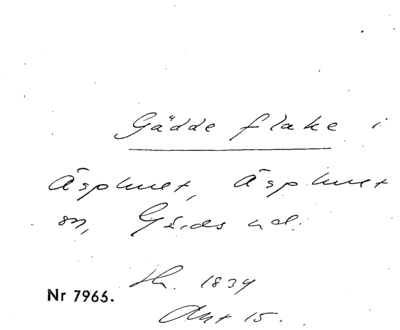 Gädde flake i
Äsphult, Äsphult
sn, Gärds hd.
Nr 7965. Ak. 1834
Akt 15.